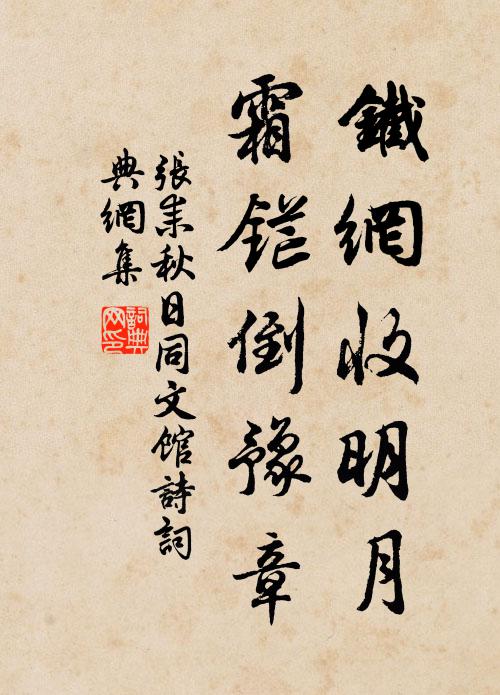 鐵網收明月
霜鋩倒豫章
張耒秋日同文館詩詞
典網集
詞典
网印